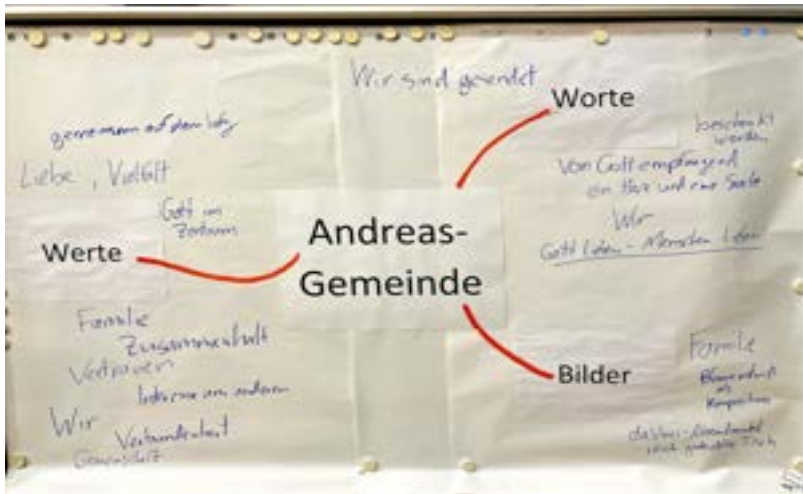 Wir sind gesendet
Worte
gemeinsam auf dem Weg
Liebe, Vielfalt
Gott im
Zentrum
Werte
Andreas-
Gemeinde
beschenkt
werden
Von Gott empfangend
ein Herz und eine Seele
Wir
Gott lieben - Menschen lieben
Familie
Zusammenhalt
Vertrauen
Interesse am anderen
Wir
Verbundenheit
Gemeinschaft
Bilder
Familie
als